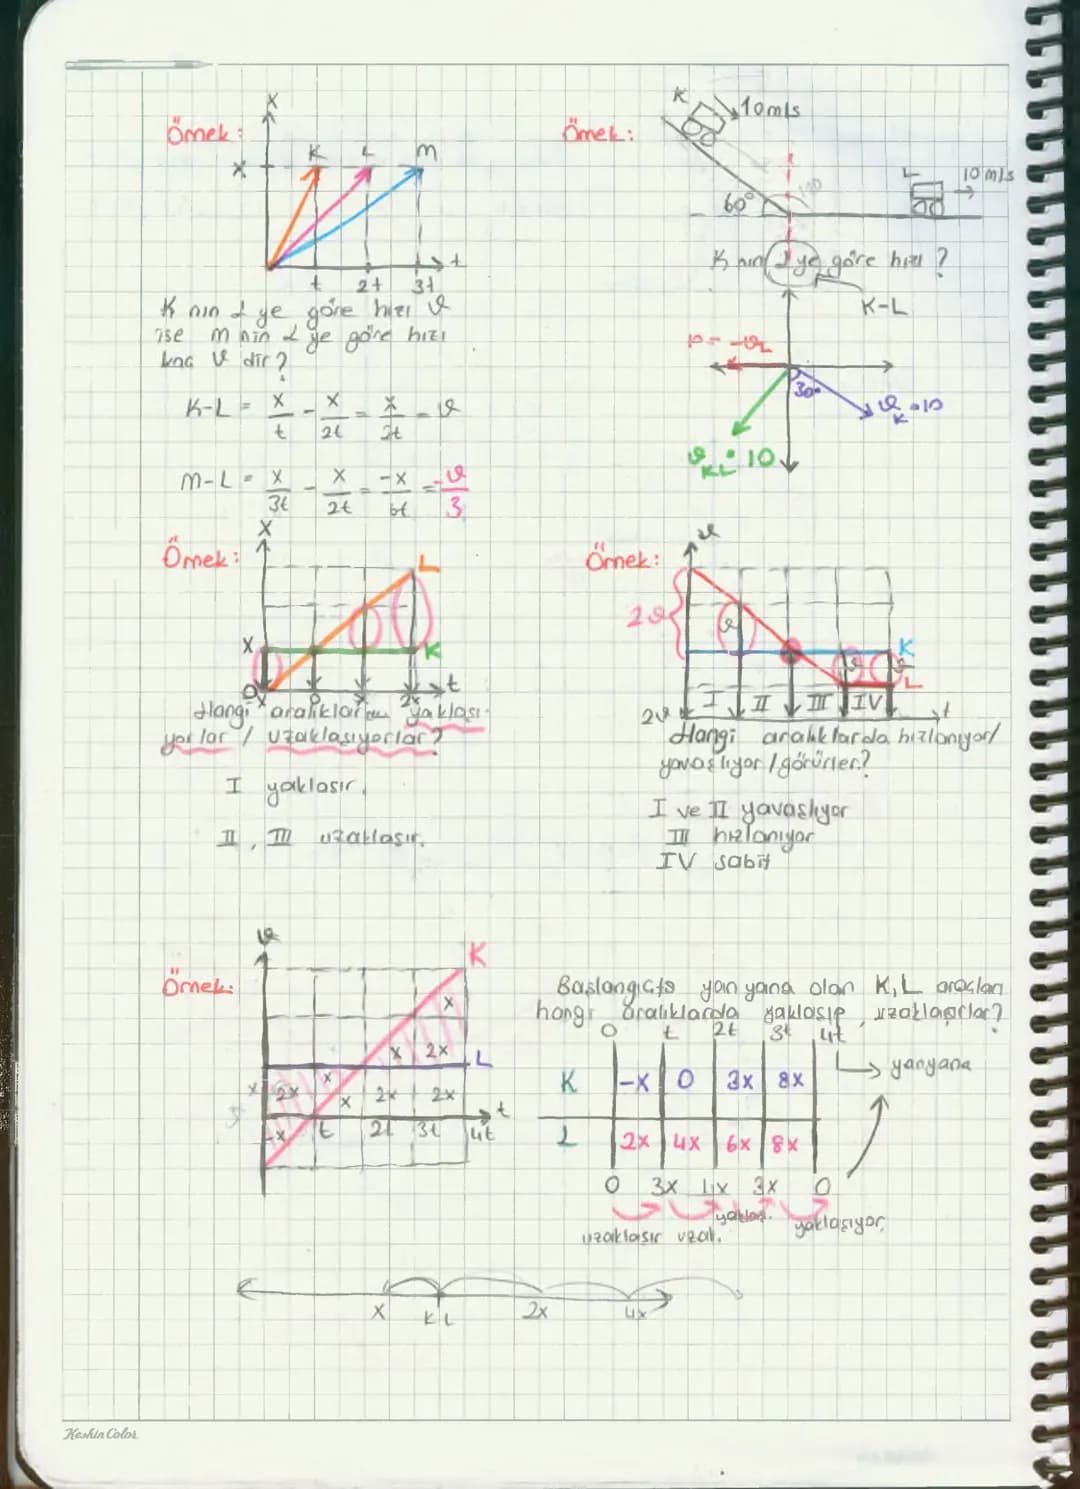 Örnek:
X
X
K L M
t 2t 3t
t
K nın L ye göre hızı ϑ
ise M nin L ye göre hızı
kaç ϑ dir?
K-L = X/t - X/2t = X/2t = ϑ
M-L = X/3t - X/2t = -X/6t = -ϑ/3
Örnek:
K
10 m/s
L
10 m/s
60°
120
K nın L ye göre hızı?
K-L
10 = -ϑL
30°
ϑK = 10
ϑKL = 10
Örnek:
X
L
X
K
t
X 0 X 2X
Hangi aralıklarda yaklaşı-
yorlar / uzaklaşıyorlar?
I yaklaşır.
II, III uzaklaşır.
Örnek:
ϑ
2ϑ
ϑ
K
ϑ ϑ
L
I II III IV
2ϑ
t
Hangi aralıklarda hızlanıyor/
yavaşlıyor / görürler?
I ve II yavaşlıyor
III hızlanıyor
IV sabit
Örnek:
ϑ
K
x
x 2x
L
x 2x x x 2x 2x
-x t 2t 3t 4t
t
Başlangıçta yan yana olan K, L araçları
hangi aralıklarda yaklaşıp, uzaklaşırlar?
0 t 2t 3t 4t
yanyana
K -x 0 3x 8x
L 2x 4x 6x 8x
0 3x 4x 3x 0
uzaklaşır uzak. yaklaş. yaklaşıyor.
X K L 2x 4x
Keskin Color